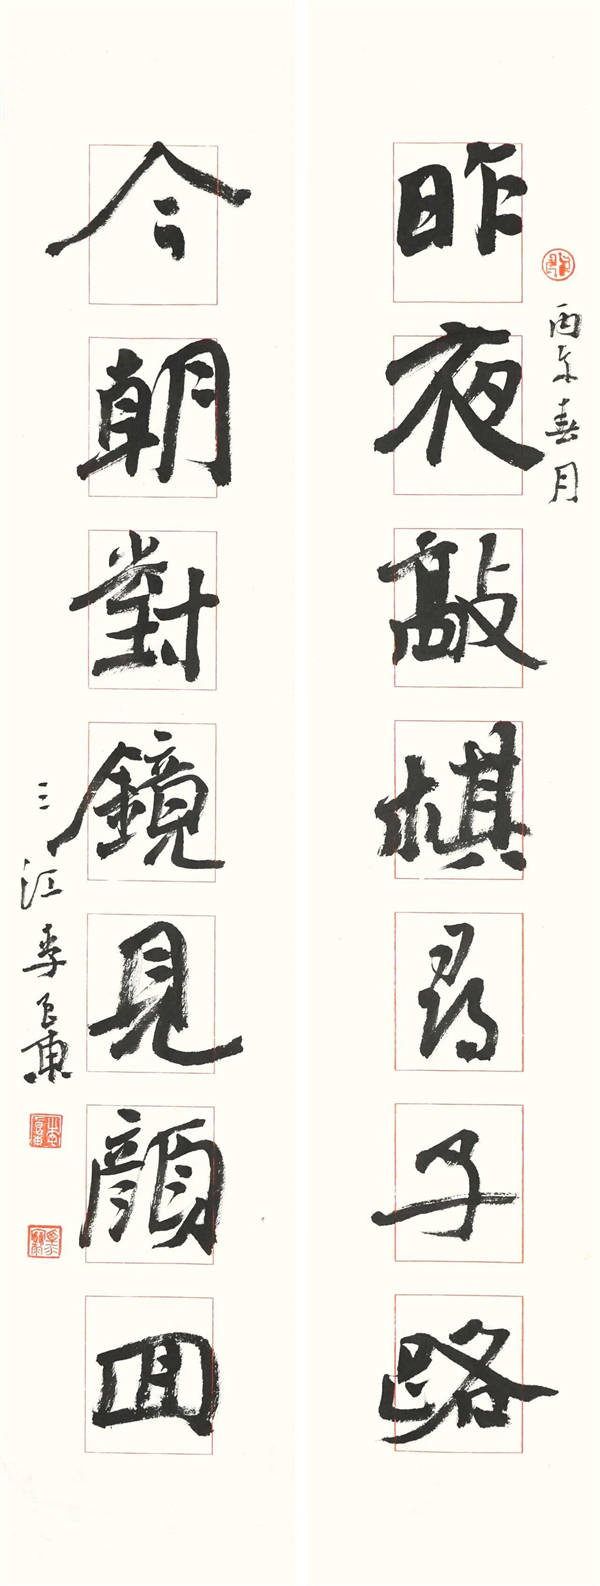 昨夜敲棋尋子路
丙春月
今朝對鏡見顔囬
三江李良東